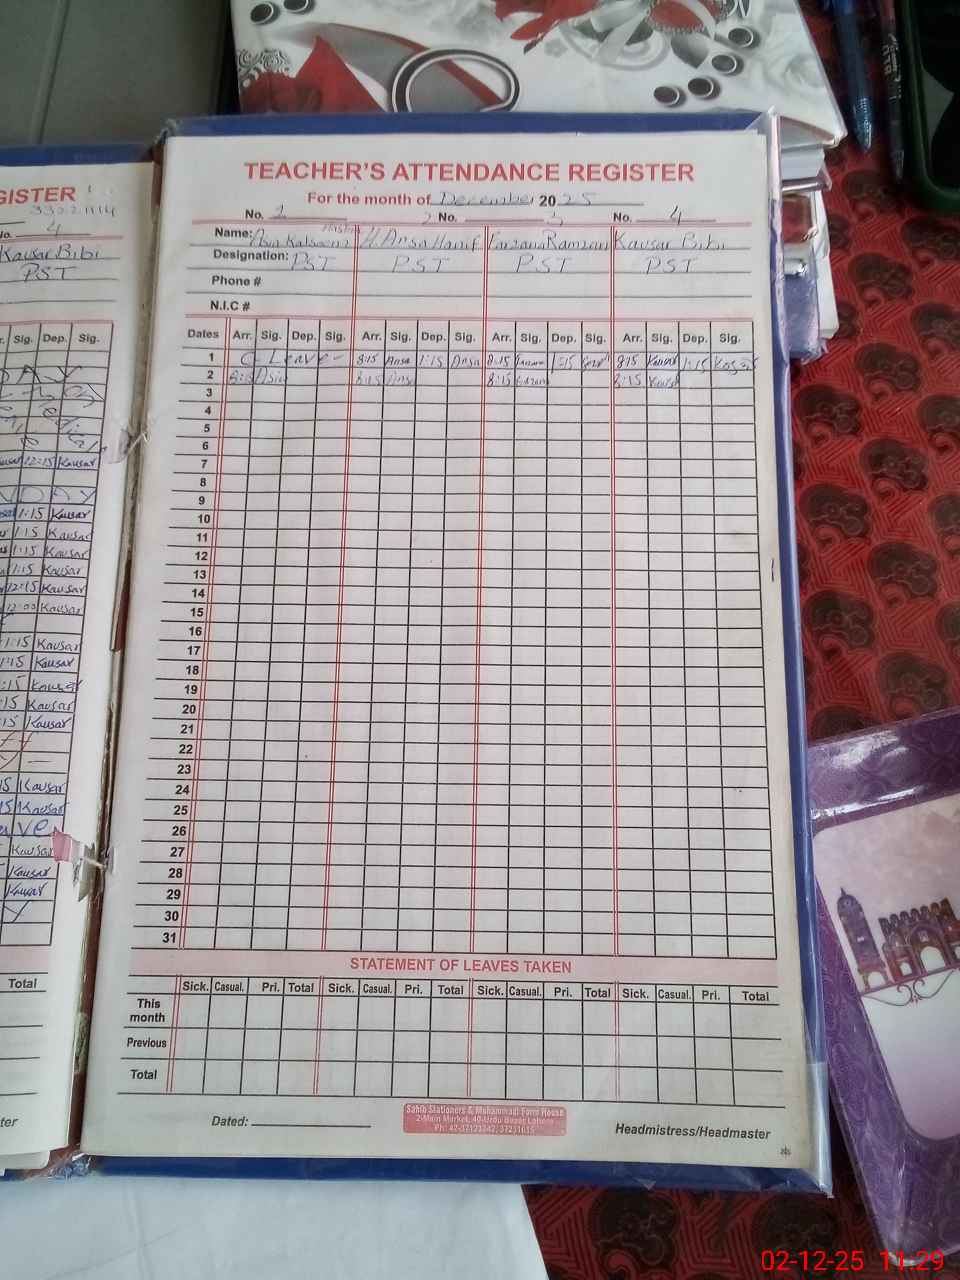 GISTER
33021114
4
Kausar Bibi
PST
r. Sig. Dep. Sig.
12:15 Kausar
1:15 Kausar
1:15 Kausar
1:15 Kausar
1:15 Kausar
12:15 Kausar
12:00 Kausar
1:15 Kausar
1:15 Kausar
:15 Kausar
:15 Kausar
:15 Kausar
15 Kausar
15 Kausar
Kausar
Kausar
Kausar
Total
TEACHER'S ATTENDANCE REGISTER
For the month of December 2025
No. 1 2 No. 3 No. 4
Name: Asia Kalsoom H. Ansa Hanif Farzana Ramzan Kausar Bibi
Designation: PST PST PST PST
Phone #
N.I.C #
Dates Arr. Sig. Dep. Sig. Arr. Sig. Dep. Sig. Arr. Sig. Dep. Sig. Arr. Sig. Dep. Sig.
1 C Leave 8:15 Ansa 1:15 Ansa 8:15 1:15 8:15 Kausar 1:15 Kosar
2 8:15 Asia 8:15 Ansa 8:15 8:15 Kausar
3
4
5
6
7
8
9
10
11
12
13
14
15
16
17
18
19
20
21
22
23
24
25
26
27
28
29
30
31
STATEMENT OF LEAVES TAKEN
Sick. Casual. Pri. Total Sick. Casual. Pri. Total Sick. Casual. Pri. Total Sick. Casual. Pri. Total
This month
Previous
Total
Dated:
Sahib Stationers & Muhammadi Farm House
2-Main Market, 40-Urdu Bazar Lahore
Ph: 42-37123242, 37231615
Headmistress/Headmaster
02-12-25 11:29